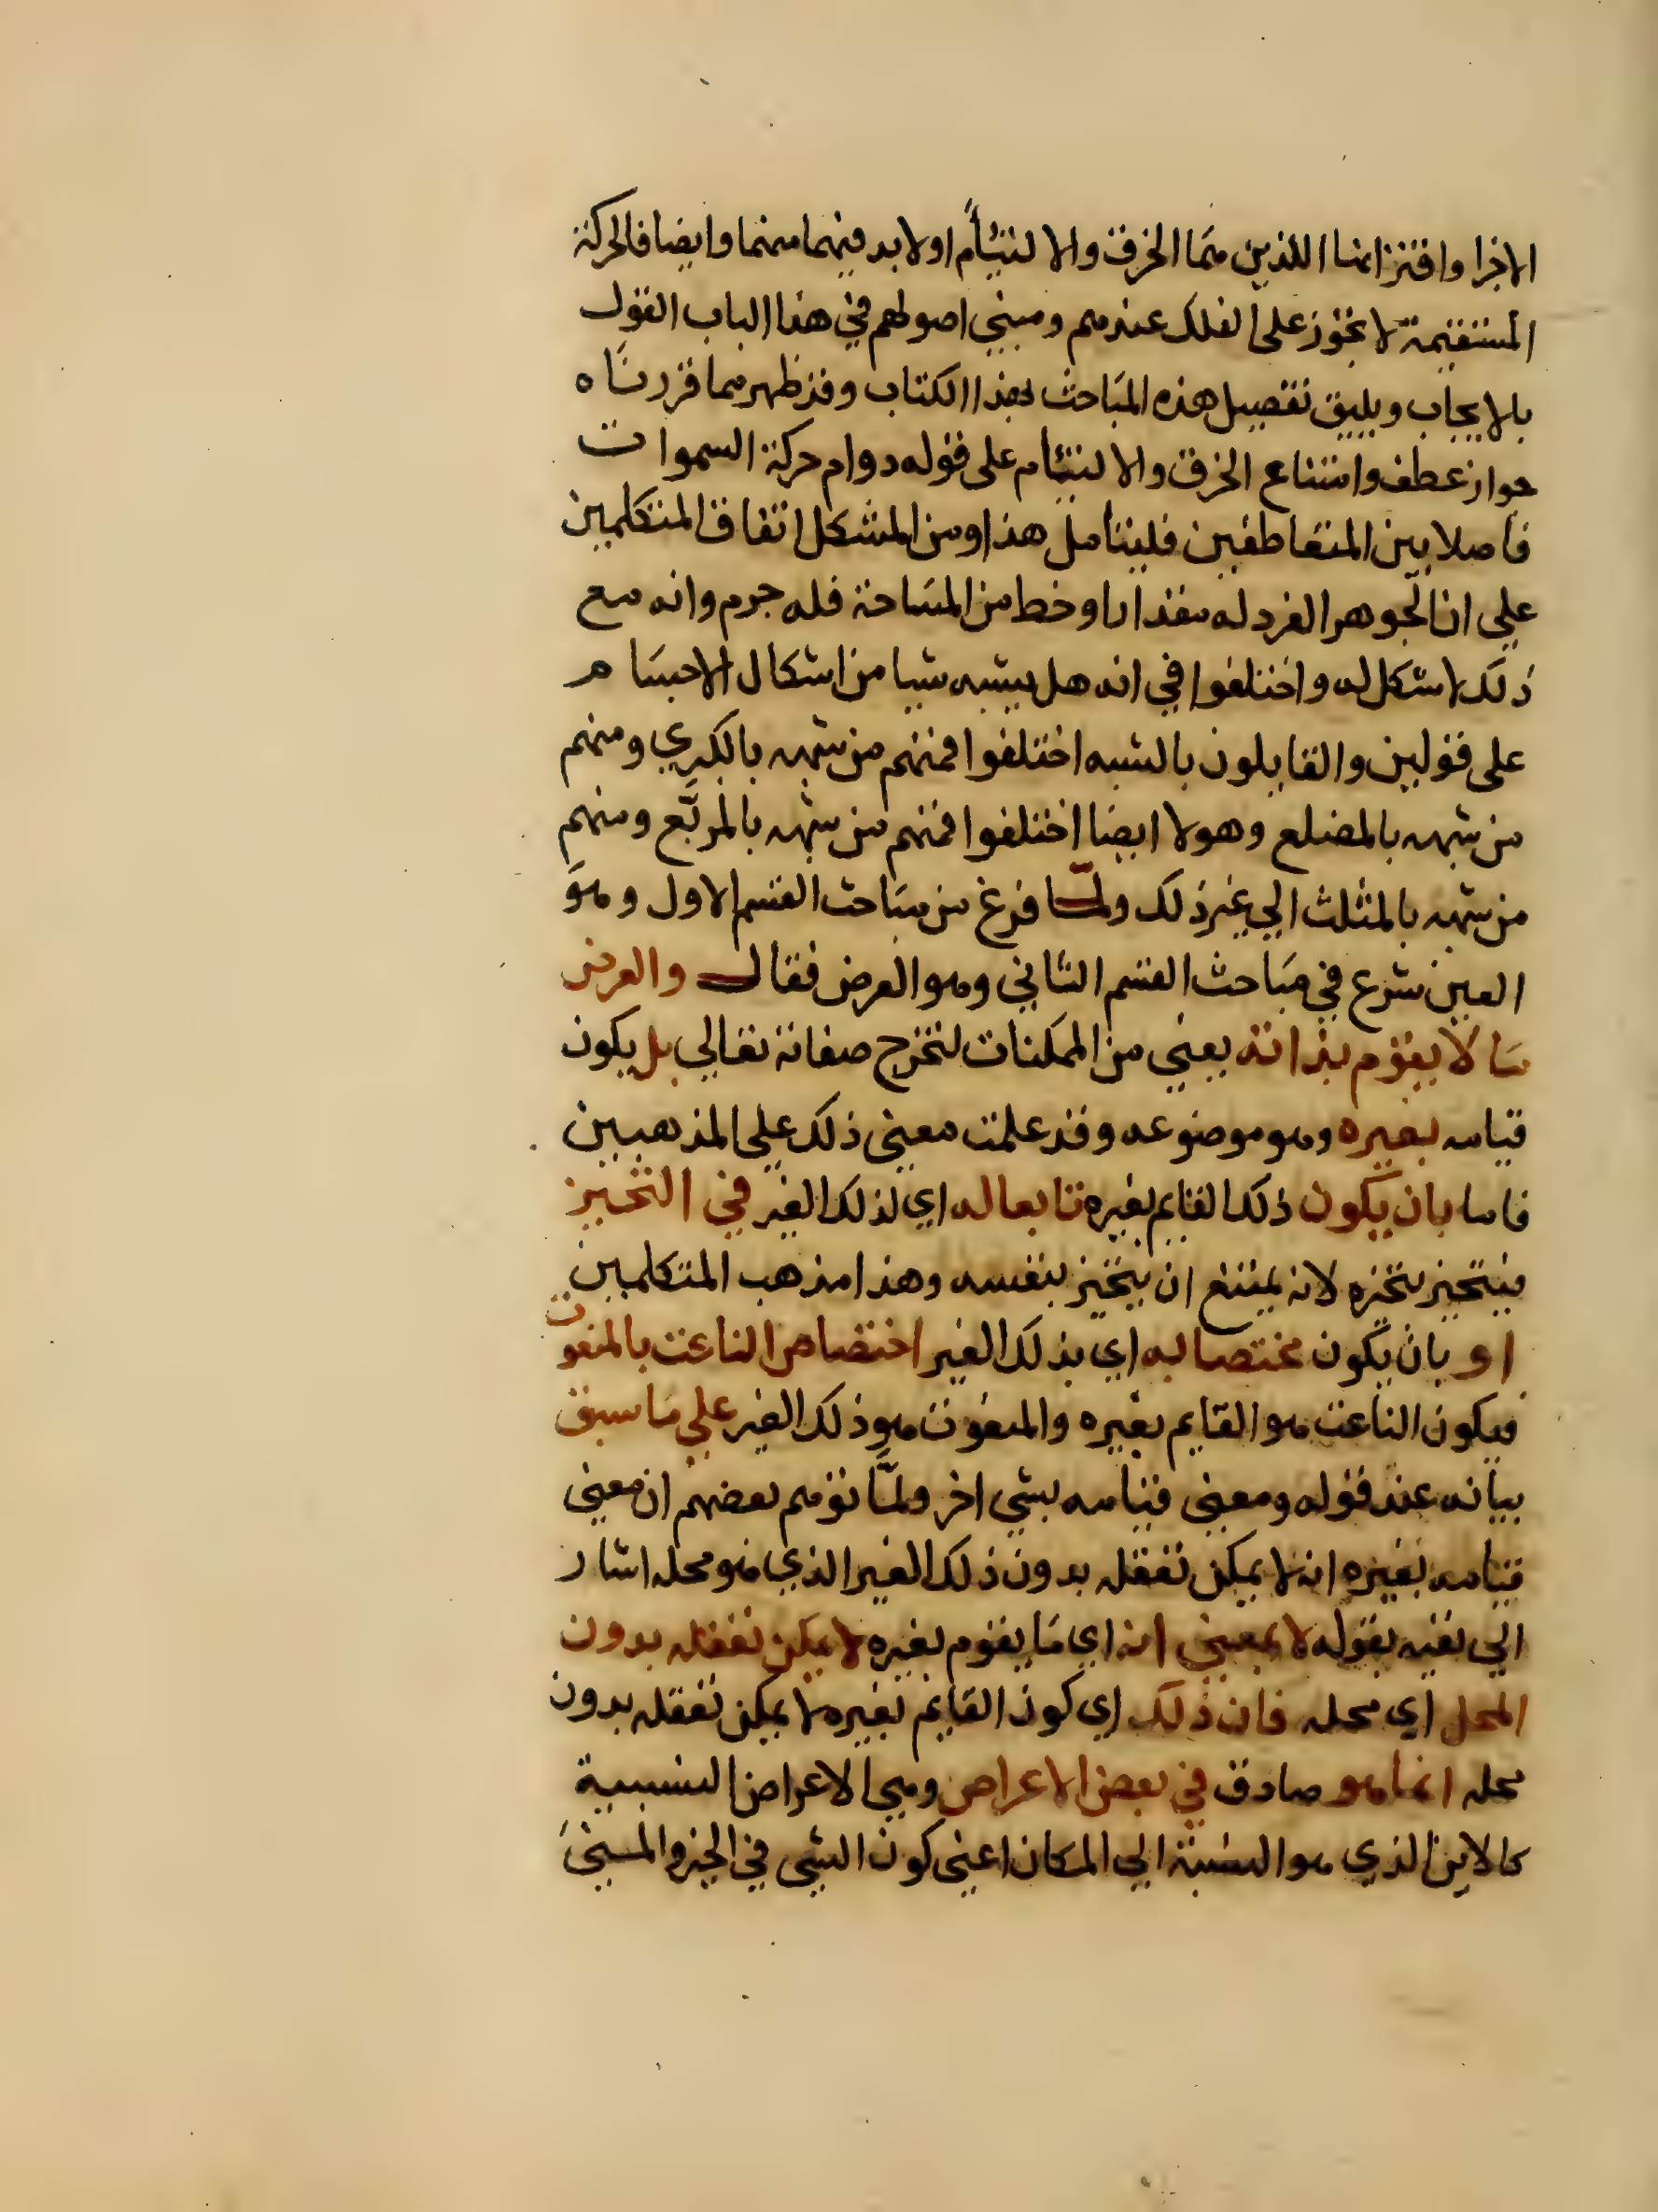 الاجزا وافتراقها اللذين هما الخرق والالتيأم اولا بد فيهما منهما وايضا فالحركة
المستقيمة لا تجوز على الفلك عندهم ومبني اصولهم في هذا الباب القول
بالايجاب ويليق تفصيل هذه المباحث بهذا الكتاب وقد ظهر مما قررناه
جواز عطف وامتناع الخرق والالتيام على قوله دوام حركة السموات
فاصلا بين المتعاطفين فليتامل هذا ومن المشكل اتفاق المتكلمين
علي ان الجوهر الفرد له مقدارا وخط من المساحة فله جرم وانه مع
ذلك لا شكل له واختلفوا في انه هل يشبه شيا من اشكال الاجسام
على قولين والقايلون بالشبه اختلفوا فمنهم من شبهه بالكري ومنهم
من شبهه بالمضلع وهولا ايضا اختلفوا فمنهم من شبهه بالمربع ومنهم
من شبهه بالمثلث الي غير ذلك ولما فرغ من مباحث القسم الاول وهو
العين شرع في مباحث القسم الثاني وهو العرض فقال والعرض
ما لا يقوم بذاته يعني من الممكنات لتخرج صفاته تعالي بل يكون
قيامه بغيره وهو موضوعه وقد علمت معنى ذلك علي المذهبين
فاما بان يكون ذلك القايم بغيره تابعا له اي لذلك الغير في التحيز
فيتحيز بتحيزه لانه يمتنع ان يتحيز بنفسه وهذا مذهب المتكلمين
او بان يكون مختصا به اي بذلك الغير اختصاص الناعت بالمنعوت
فيكون الناعت هو القايم بغيره والمنعوت هو ذلك الغير علي ما سبق
بيانه عند قوله ومعنى قيامه بشي اخر ولما توهم بعضهم ان معنى
قيامه بغيره انه لا يمكن تعقله بدون ذلك الغير الذي هو محله اشار
الي نفيه بقوله لا بمعني انه اي ما يقوم بغيره لا يمكن تعقله بدون
المحل اي محله فان ذلك اي كون القايم بغيره لا يمكن تعقله بدون
محله انما هو صادق في بعض الاعراض وهي الاعراض النسبية
كالاين الذي هو النسبة الي المكان اعني كون الشي في الحيز والمتي